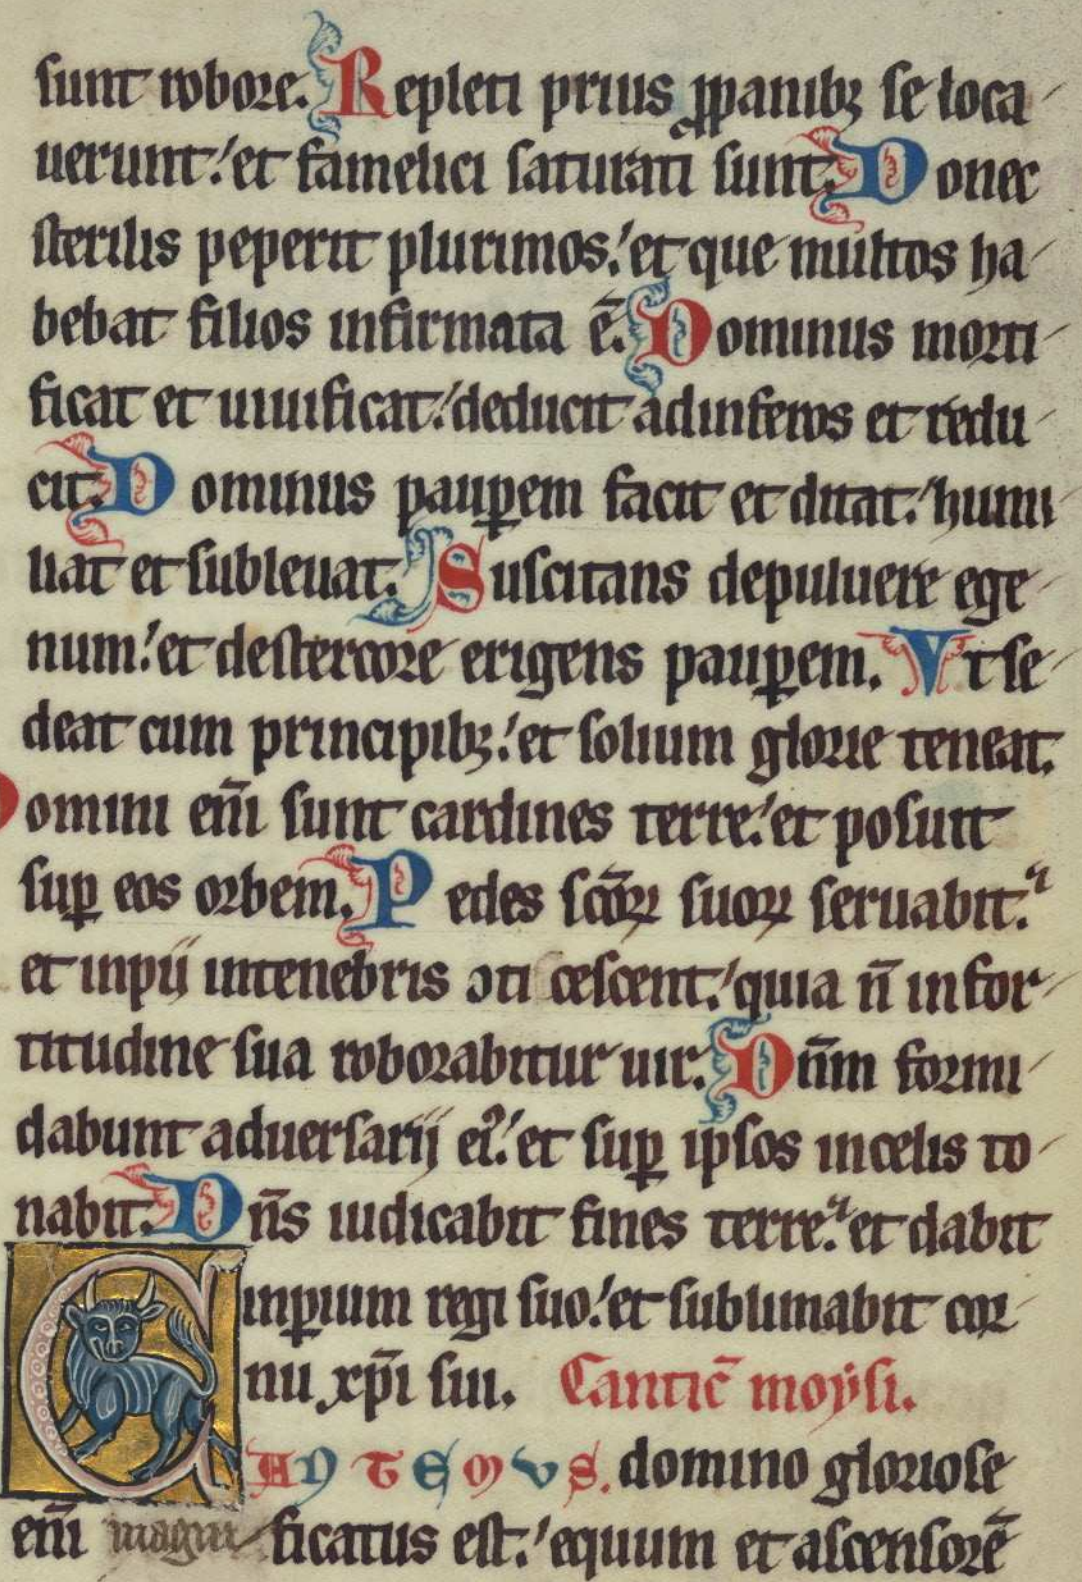 sunt robore. Repleti prius ꝓpanibꝫ se loca
uerunt: et famelici saturati sunt. Donec
sterilis peperit plurimos: et que multos ha
bebat filios infirmata ē. Dominus morti
ficat et uiuificat: deducit adinferos et redu
cit. Dominus pauꝑem facit et ditat: humi
liat et subleuat. Suscitans depuluere ege
num: et destercore erigens pauꝑem. Vt se
deat cum principibꝫ: et solium glorie teneat.
Domini eni̅ sunt cardines terre: et posuit
suꝑ eos orbem. Pedes sc̅oꝝ suoꝝ seruabit:
et inpij intenebris ↄticescent: quia n̅ infor
titudine sua roborabitur uir. Dn̅m formi
dabunt aduersarij eiꝰ: et suꝑ ipsos incelis to
nabit. Dn̅s iudicabit fines terre: et dabit
inꝑium regi suo: et sublimabit cor
nu xp̅i sui. Cantic̅ moẏsi.
CANTEMVS. domino gloriose
eni̅ magni ficatus est: equum et ascensorē